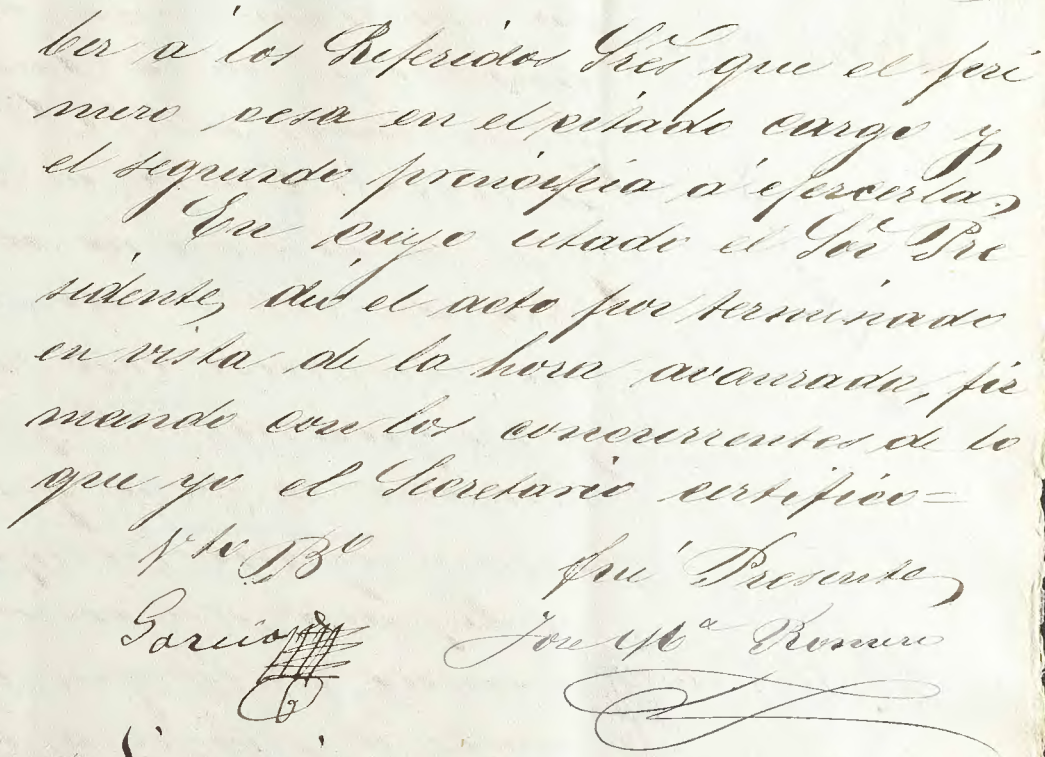 ber a los Referidos Sres que el pri
mero cesa en el citado cargo y
el segundo principia á ejercerla,
En cuyo estado el Sor Pre
sidente, dió el acto por terminado
en vista de la hora avanzada, fir
mando con los concurrentes de lo
que yo el Secretario certifico=
Vto Bo
Fui Presente
Garcia
Jose Ma Romero